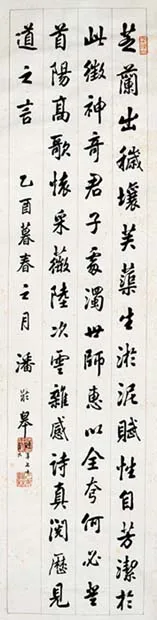 芝蘭出穢壤芙蕖生淤泥賦性自芳潔於
此徵神奇君子處濁世師惠以全夸何必登
首陽高歌懷采薇陸次雲雜感詩真閱歷見
道之言 乙酉暮春之月 潘齡皋